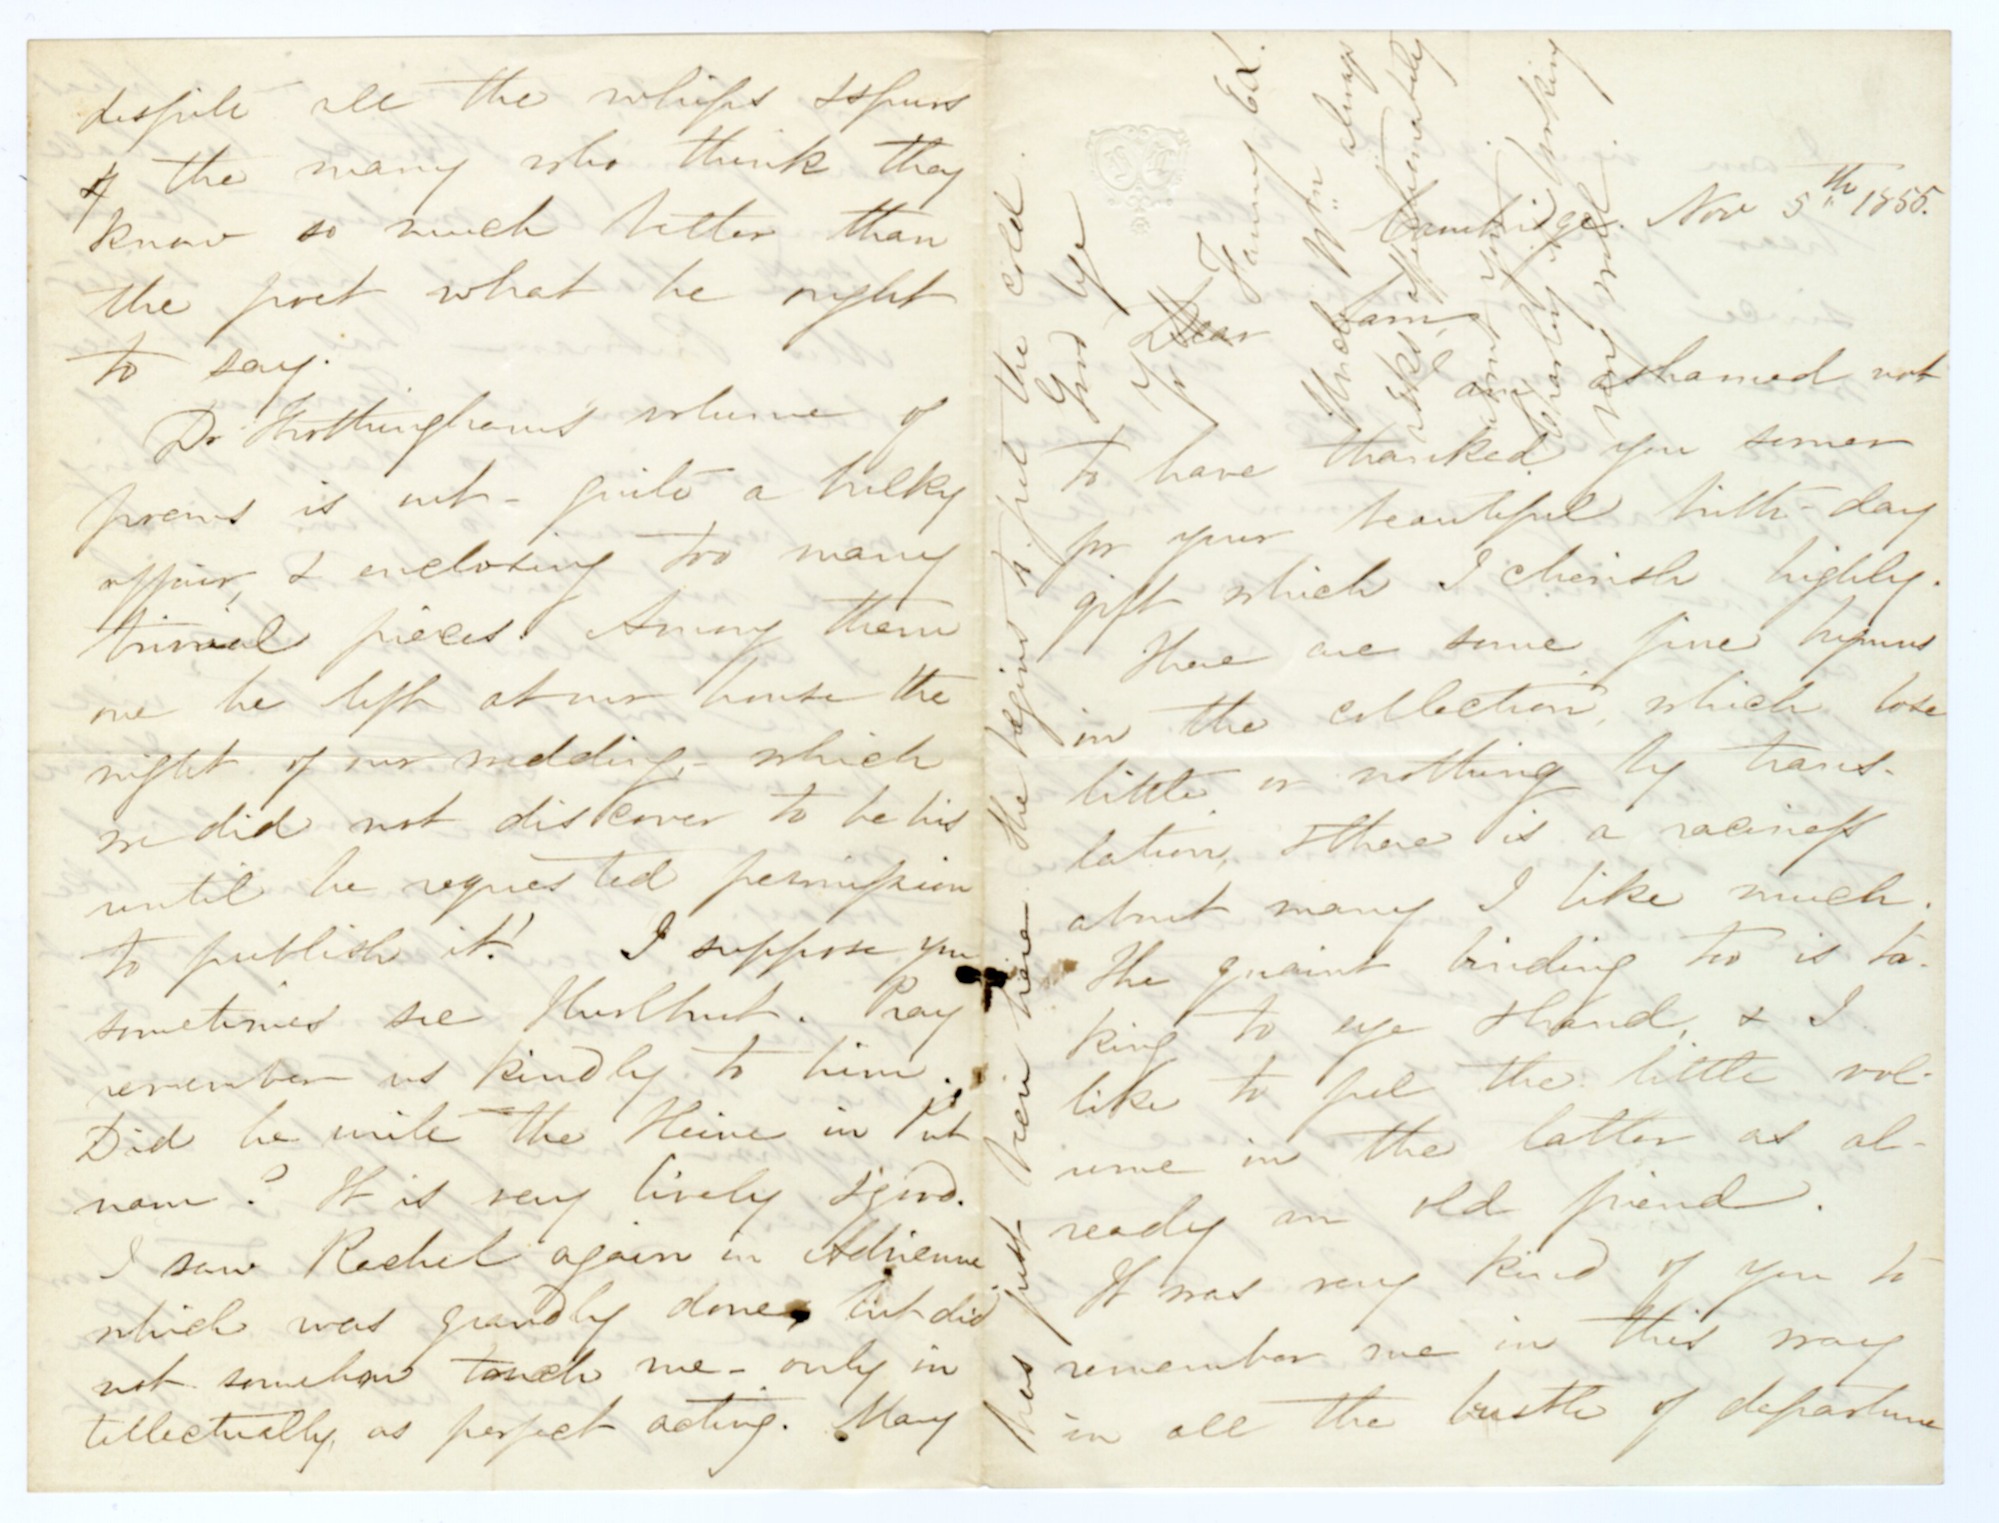 Cambridge. Nov 5th 1855.
Dear Sam,
I am ashamed not
to have thanked you sooner
for your beautiful birth-day
gift which I cherish highly.
There are some fine hymns
in the collection, which lose
little or nothing by trans-
lation, & there is a raciness
about many I like much.
The quaint binding too is ta-
king to eye & hand, & I
like to feel the little vol-
ume in the latter as al-
ready an old friend.
It was very kind of you to
remember me in this way
in all the bustle of departure
despite all the whips & spurs
of the many who think they
know so much better than
the poet what he ought
to say.
Dr Frothingham's volume of
poems is out - quite a bulky
affair, & enclosing too many
trivial pieces. Among them
one he left at our house the
night of our wedding, - which
we did not discover to be his
until he requested permission
to publish it! I suppose you
sometimes see Hurlbut. Pray
remember us kindly to him.
Did he write the Heine in Put
nam? It is very lively & good.
I saw Rachel again in Adrienne
which was grandly done, but did
not somehow touch me - only in
tellectually, as perfect acting. Mary
has just been here. She begins to feel the cold.
Good bye
Yr
Fanny E L.
Uncle Wm always
asks affectionately
about you
Charley is looking
very well.